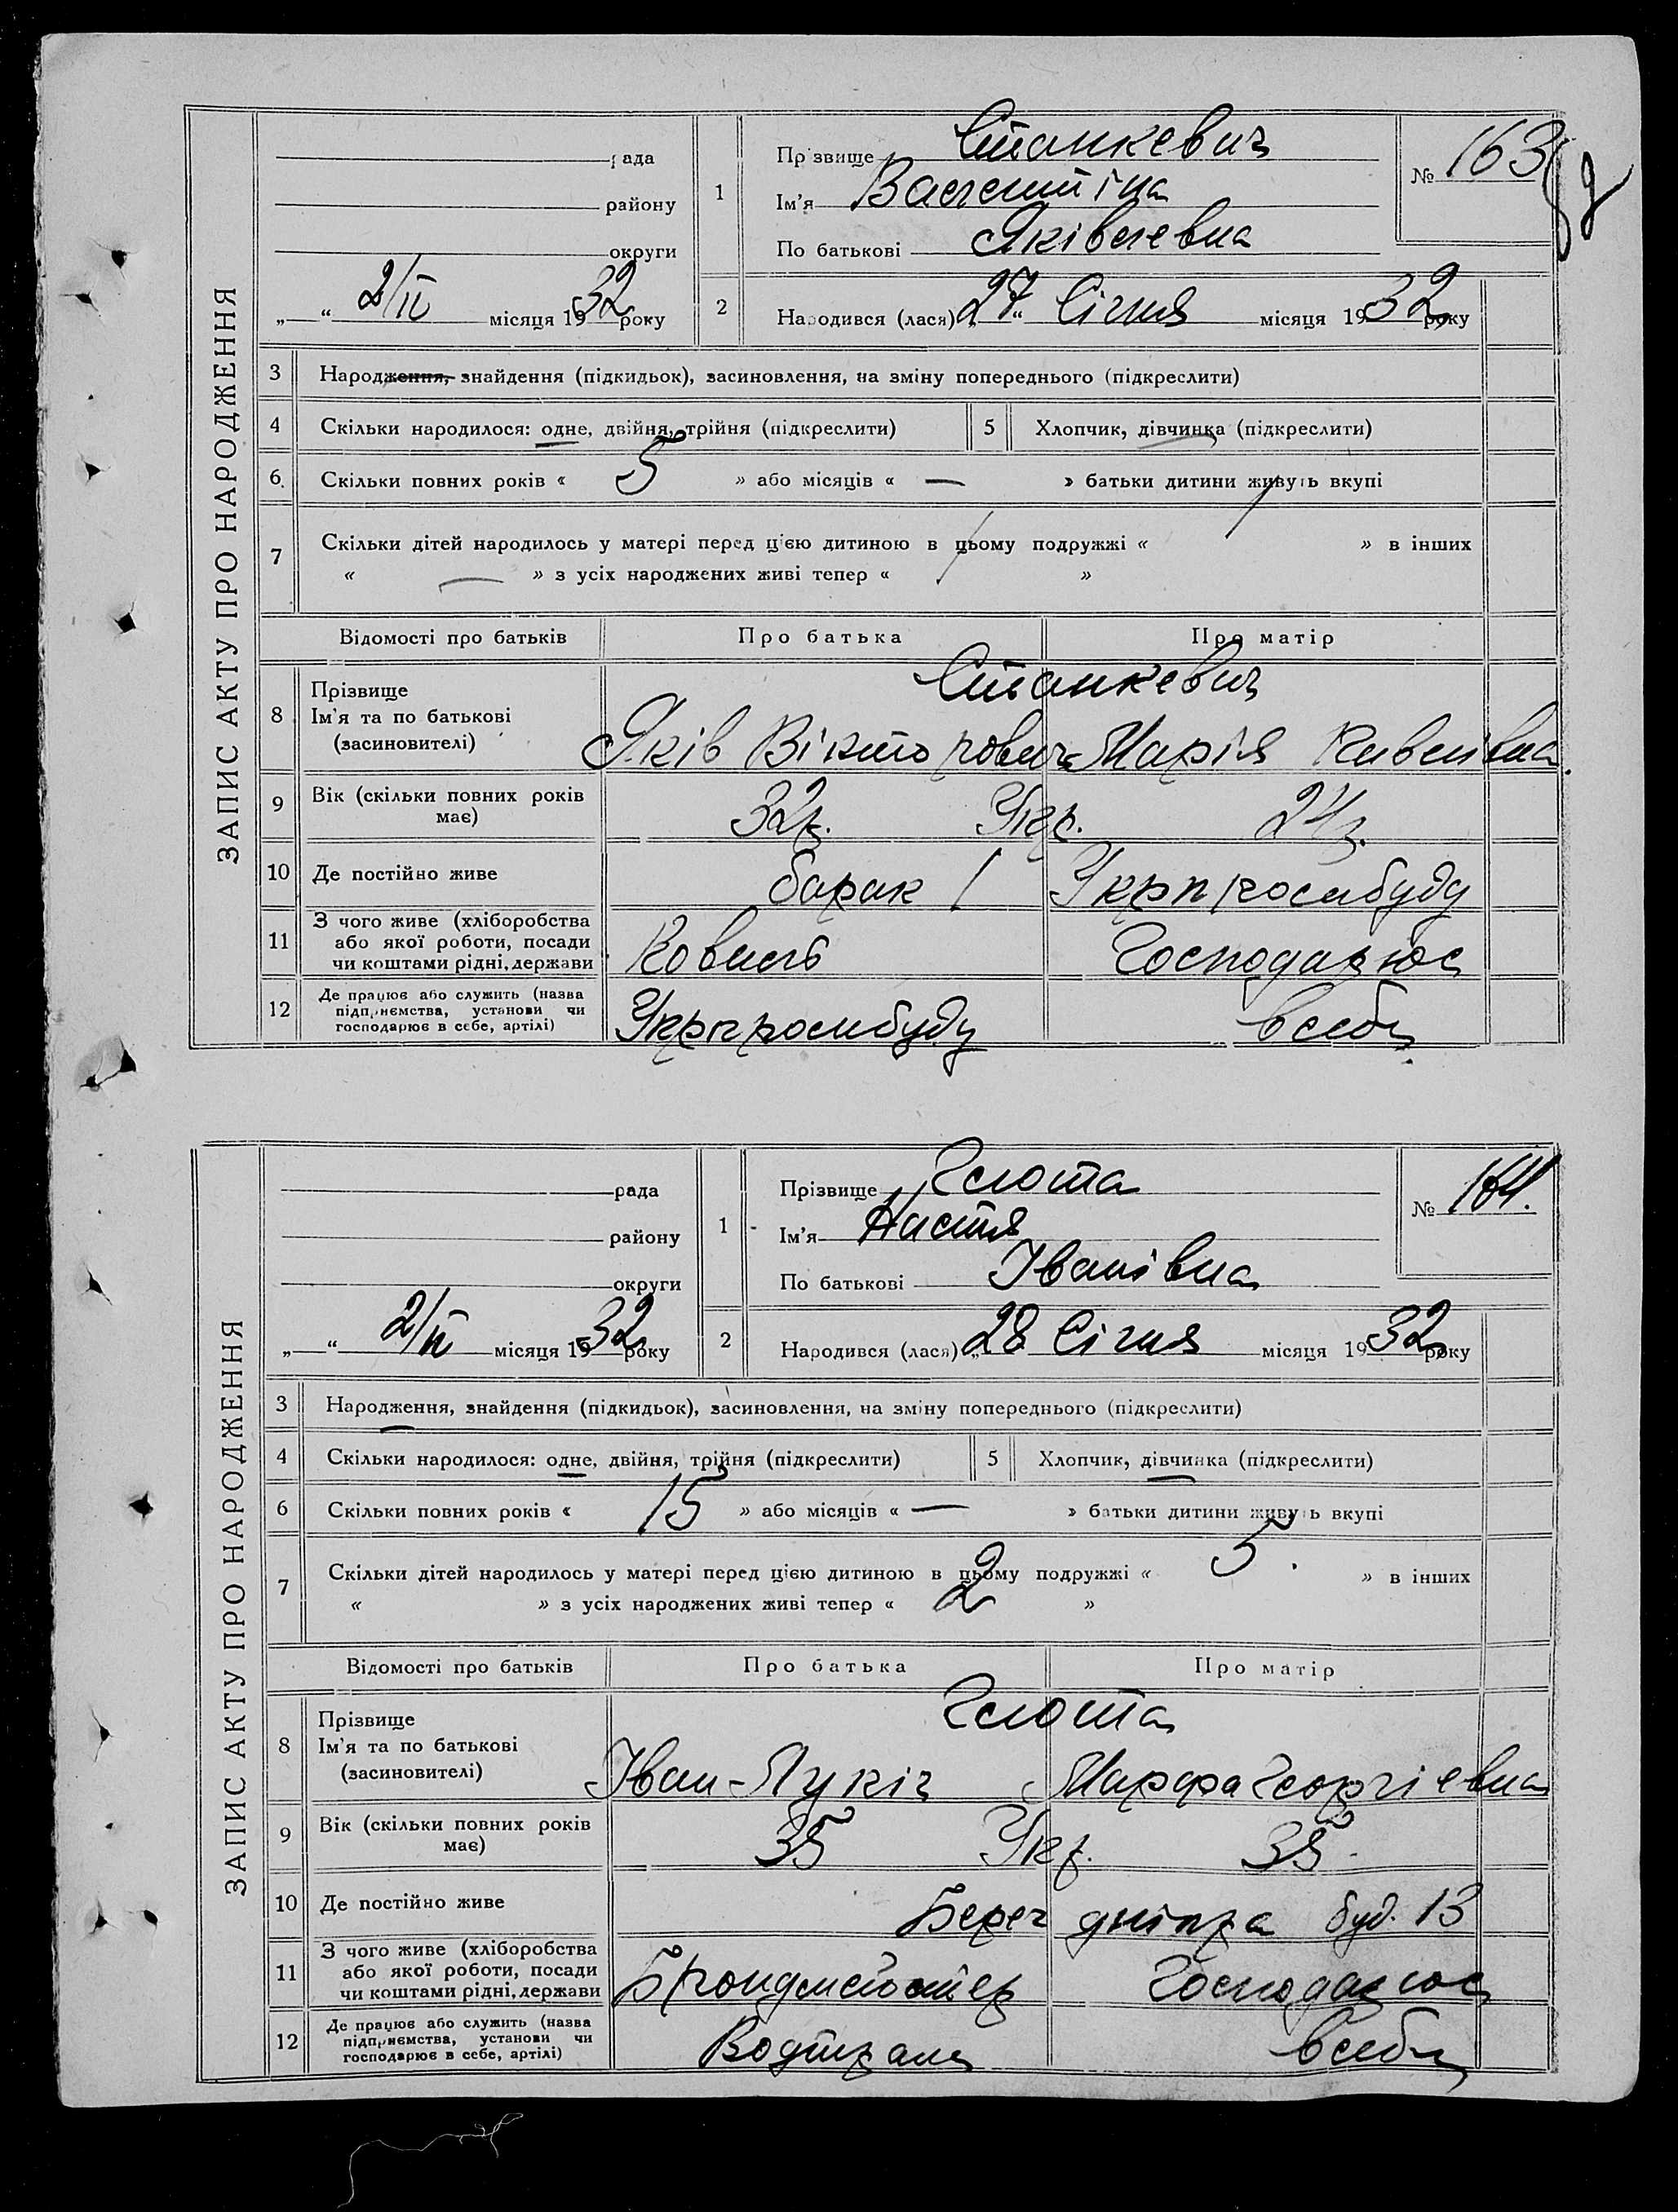 ЗАПИС АКТУ ПРО НАРОДЖЕННЯ
рада
району
округи
„ “ 2/II місяця 1932 року
1
Прізвище Станкевич
Ім'я Валентіна
По батькові Яківлевна
№ 163
2
Народився (лася) „27“ Січня місяця 1932 року
3 Народження, знайдення (підкидьок), засиновлення, на зміну попереднього (підкреслити)
4 Скільки народилося: одне, двійня, трійня (підкреслити) 5 Хлопчик, дівчинка (підкреслити)
6. Скільки повних років « 5 » або місяців « — » батьки дитини живуть вкупі
7 Скільки дітей народилось у матері перед цією дитиною в цьому подружжі « 1 » в інших
« — » з усіх народжених живі тепер « 1 »
Відомості про батьків Про батька Про матір
8 Прізвище Станкевич
Ім'я та по батькові Яків Вікторович Марія
(засновителі)
9 Вік (скільки повних років має) 32р. Укр. 24р.
10 Де постійно живе барак 1 Укрпромбуду
11 З чого живе (хліборобства або якої роботи, посади чи коштами рідні, держави Коваль Господарює
12 Де працює або служить (назва підприємства, установи чи господарює в себе, артілі) Укрпромбуду в себе
ЗАПИС АКТУ ПРО НАРОДЖЕННЯ
рада
району
округи
„ “ 2/II місяця 1932 року
1
Прізвище Глюта
Ім'я Настя
По батькові Іванівна
№ 164.
2
Народився (лася) „28 Січня місяця 1932 року
3 Народження, знайдення (підкидьок), засиновлення, на зміну попереднього (підкреслити)
4 Скільки народилося: одне, двійня, трійня (підкреслити) 5 Хлопчик, дівчинка (підкреслити)
6 Скільки повних років « 15 » або місяців « — » батьки дитини живуть вкупі
7 Скільки дітей народилось у матері перед цією дитиною в цьому подружжі « 5. » в інших
« » з усіх народжених живі тепер « 2 »
Відомості про батьків Про батька Про матір
8 Прізвище Глюта
Ім'я та по батькові Іван-Лукіч Марфа Георгіевна
(засиновителі)
9 Вік (скільки повних років має) 35 Укр. 35
10 Де постійно живе Берег дніпра буд. 13
11 З чого живе (хліборобства або якої роботи, посади чи коштами рідні, держави Брондмейстер Господарює
12 Де працює або служить (назва підприємства, установи чи господарює в себе, артілі) Водтранс в себе